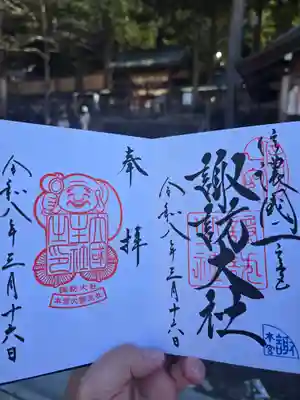 信濃國一之宮
諏訪大社
令和八年三月十六日
本宮
奉拝
諏訪大社
本宮大國主社
令和八年三月十六日